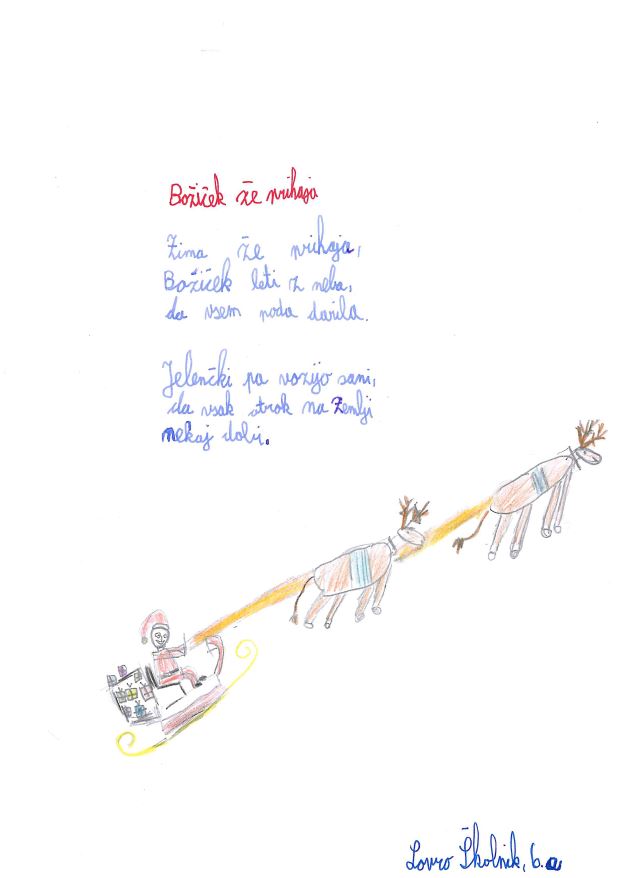 Božiček že prihaja
Zima že prihaja,
Božiček leti z neba,
da vsem poda darila.
Jelenčki pa vozijo sani,
da vsak otrok na Zemlji
nekaj dobi.
Lovro Školnik, 6. a